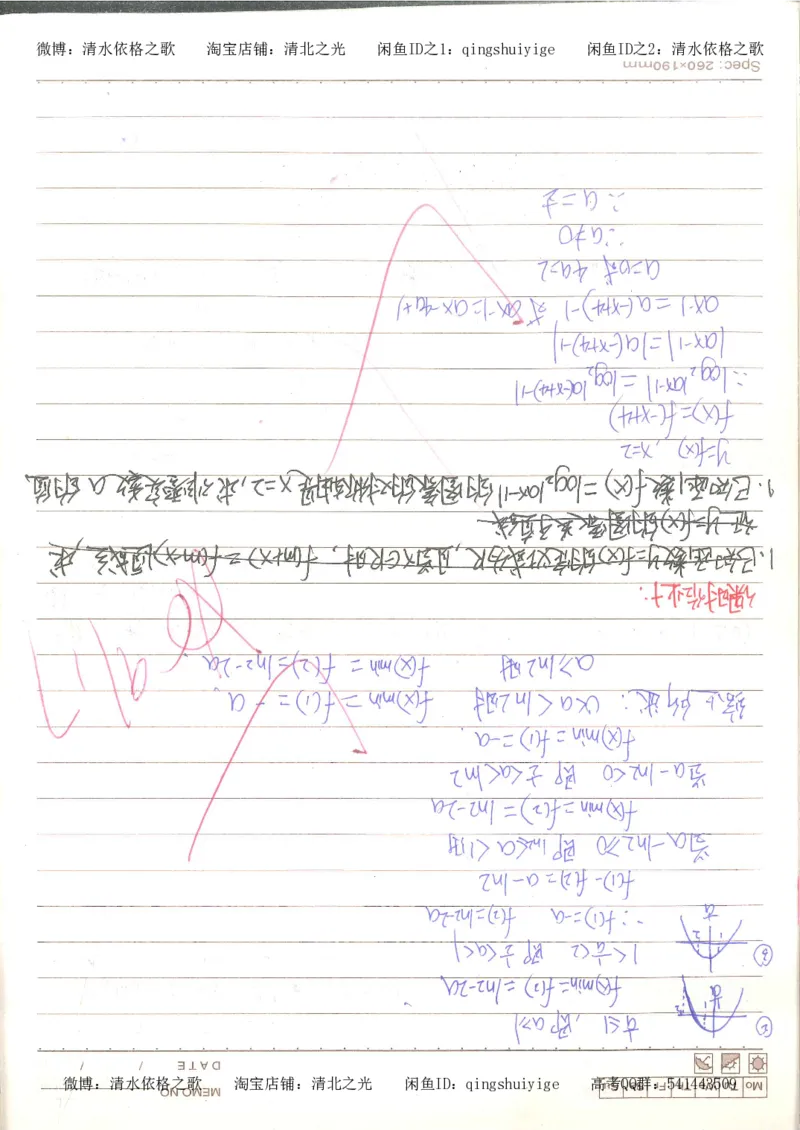 微博：清水依格之歌 淘宝店铺：清北之光 闲鱼ID之1：qingshuiyige 闲鱼ID之2：清水依格之歌
MEMO NO.
DATE / /
② 1/a≤1, 即a≥1
f(x)min=f(2)=ln2-2a
③ 1<1/a<2 即1/2<a<1
∴f(1)=-a f(2)=ln2-2a
f(1)-f(2)=a-ln2
当a-ln2≥0 即ln2≤a<1时
f(x)min=f(2)=ln2-2a
当a-ln2<0 即1/2<a<ln2
f(x)min=f(1)=-a.
综上所述: 0<a<ln2时 f(x)min=f(1)=-a.
a≥ln2时 f(x)min=f(2)=ln2-2a.
课时作业:
1.已知函数y=f(x)的定义域为R,且当x∈R时,f(m+x)=f(m-x)恒成立,求
证y=f(x)的图像关于直线
1.已知函数f(x)=log₂|ax-1|的图像的对称轴是x=2,求非零实数a的值
y=f(x), x=2
f(x)=f(-x+4)
∴log₂|ax-1|=log₂|a(-x+4)-1|
|ax-1|=|a(-x+4)-1|
ax-1=a(-x+4)-1 或 ax-1=ax-4a+1
a=0或 4a=2
∴a≠0
∴a=1/2
Spec: 260×190mm
微博：清水依格之歌 淘宝店铺：清北之光 闲鱼ID：qingshuiyige 高考QQ群：541443509